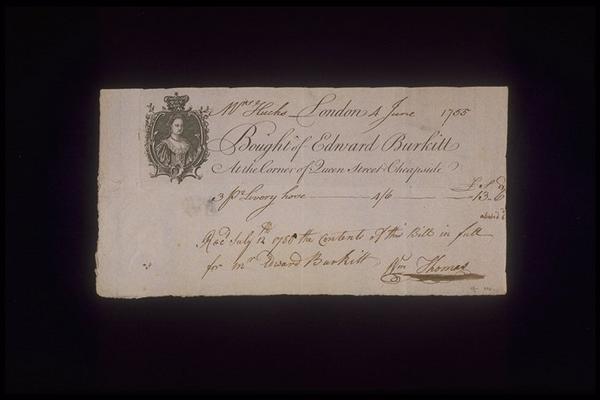 Mrs Hucks London 4 June 1755
Bought of Edward Burkitt
At the Corner of Queen Street Cheapside
£ S d
3 pr Livery hose 4/6 13 6
Recd July 12th 1756 the Contents of this Bill in full
for mr Edward Burkitt Wm Thomas